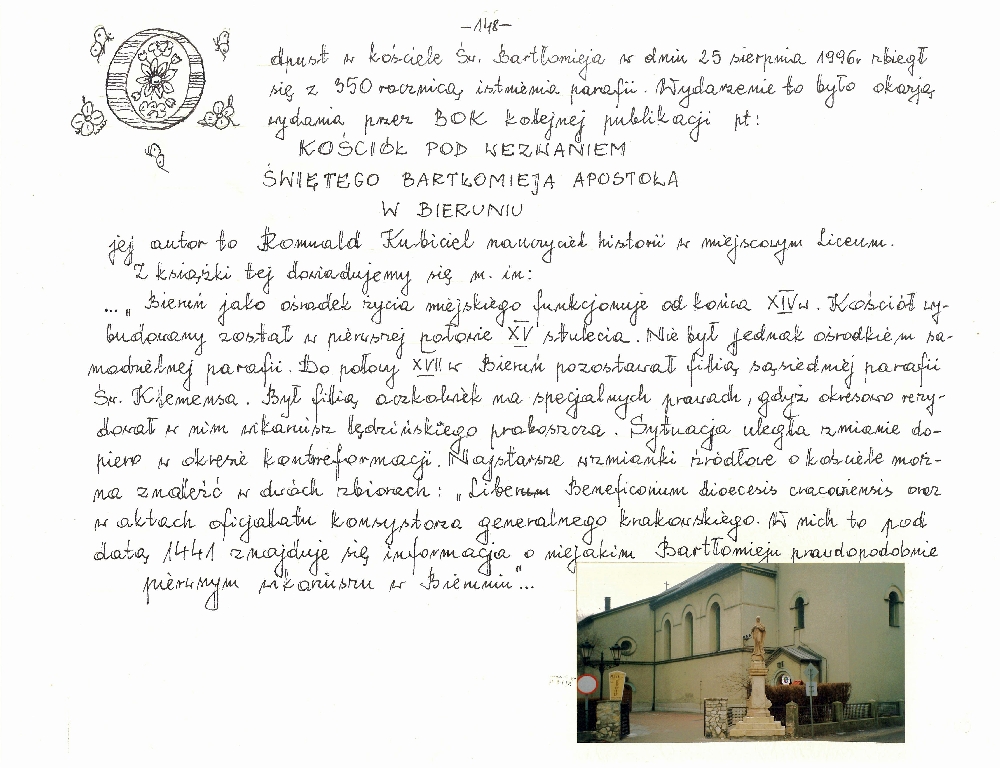 -148-
Odpust w kościele Św. Bartłomieja w dniu 25 sierpnia 1996r zbiegł
się z 350 rocznicą istnienia parafii. Wydarzenie to było okazją
wydania przez BOK kolejnej publikacji pt:
KOŚCIÓŁ POD WEZWANIEM
ŚWIĘTEGO BARTŁOMIEJA APOSTOŁA
W BIERUNIU
jej autor to Romuald Kubiciel nauczyciel historii w miejscowym Liceum.
Z książki tej dowiadujemy się m. in:
... „Bieruń jako ośrodek życia miejskiego funkcjonuje od końca XIV w. Kościół wy-
budowany został w pierwszej połowie XV stulecia. Nie był jednak ośrodkiem sa-
modzielnej parafii. Do połowy XVII w Bieruń pozostawał filią sąsiedniej parafii
Św. Klemensa. Był filią aczkolwiek na specjalnych prawach, gdyż okresowo rezy-
dował w nim wikariusz lędzińskiego proboszcza. Sytuacja uległa zmianie do-
piero w okresie kontrreformacji. Najstarsze wzmianki źródłowe o kościele moż-
na znaleźć w dwóch zbiorach: „Liberum Beneficiorum dioecesis cracoviensis oraz
w aktach oficjalatu konsystorza generalnego krakowskiego. W nich to pod
datą 1441 znajduje się informacja o niejakim Bartłomieju prawdopodobnie
pierwszym wikariuszu w Bieruniu"...